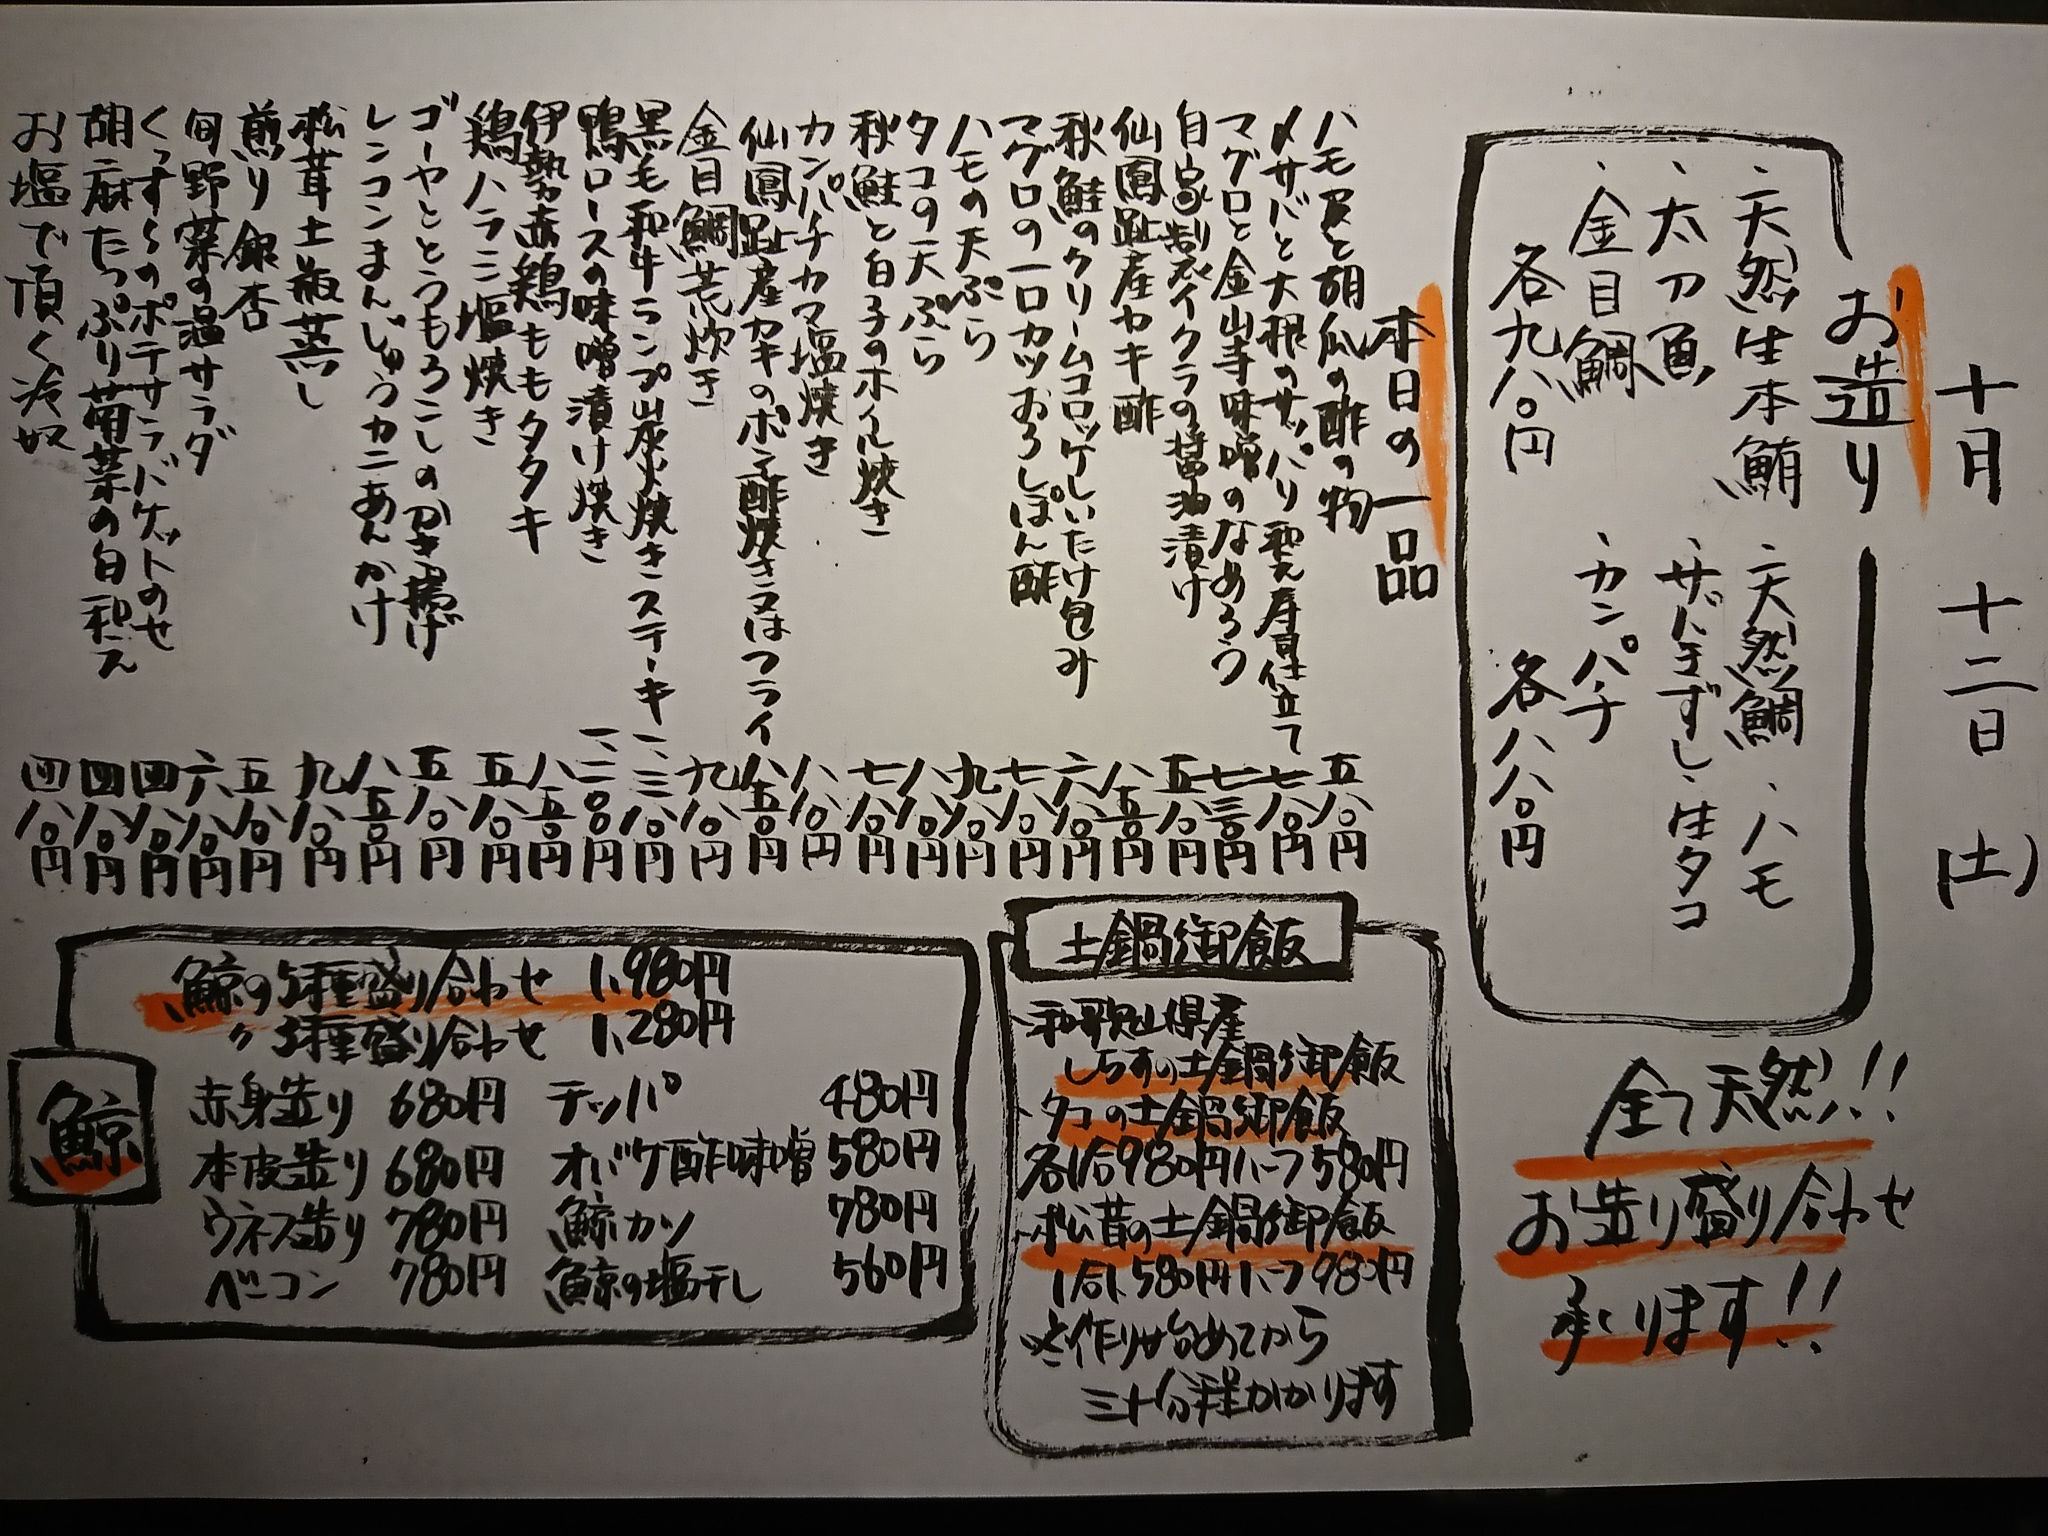 十月 十二日 (土)
お造り
、天然生本鮪 、天然鯛 、ハモ
、太刀魚 、サバきずし 、生タコ
、金目鯛 、カンパチ
各九八〇円 各八八〇円
全て天然!!
お造り盛り合わせ
承ります!!
本日の一品
ハモ皮と胡瓜の酢の物 五八〇円
〆サバと大根のサッパリ和え寿司仕立て 七八〇円
マグロと金山寺味噌のなめろう 七三〇円
自家製イクラの醤油漬け 五八〇円
仙鳳趾産カキ酢 八五〇円
秋鮭のクリームコロッケしいたけ包み 六八〇円
マグロの一口カツおろしぽん酢 七八〇円
ハモの天ぷら 九八〇円
タコの天ぷら 八八〇円
秋鮭と白子のホイル焼き 七八〇円
カンパチカマ塩焼き 八八〇円
仙鳳趾産カキのポン酢焼き又はフライ 八五〇円
金目鯛荒炊き 九八〇円
黒毛和牛ランプ炭火焼きステーキ 一、三八〇円
鴨ロースの味噌漬け焼き 一、二〇〇円
伊勢赤鶏ももタタキ 八五〇円
鶏ハラミ塩焼き 五八〇円
ゴーヤととうもろこしのかき揚げ 五八〇円
レンコンまんじゅうカニあんかけ 八五〇円
松茸土瓶蒸し 九八〇円
煎り銀杏 五八〇円
旬野菜の温サラダ 六八〇円
くっすぅのポテサラバゲットのせ 四八〇円
胡麻たっぷり菊菜の白和え 四八〇円
お塩で頂く冷奴 四八〇円
土鍋御飯
、和歌山県産
しらすの土鍋御飯
、タコの土鍋御飯
各1合980円ハーフ580円
、松茸の土鍋御飯
1合1,580円ハーフ980円
※作り始めてから
三十分程かかります
鯨
鯨の5種盛り合わせ 1,980円
〃 3種盛り合わせ 1,280円
赤身造り 680円 テッパ 480円
本皮造り 680円 オバケ酢味噌 580円
ウネス造り 780円 鯨カツ 780円
ベーコン 780円 鯨の塩干し 560円